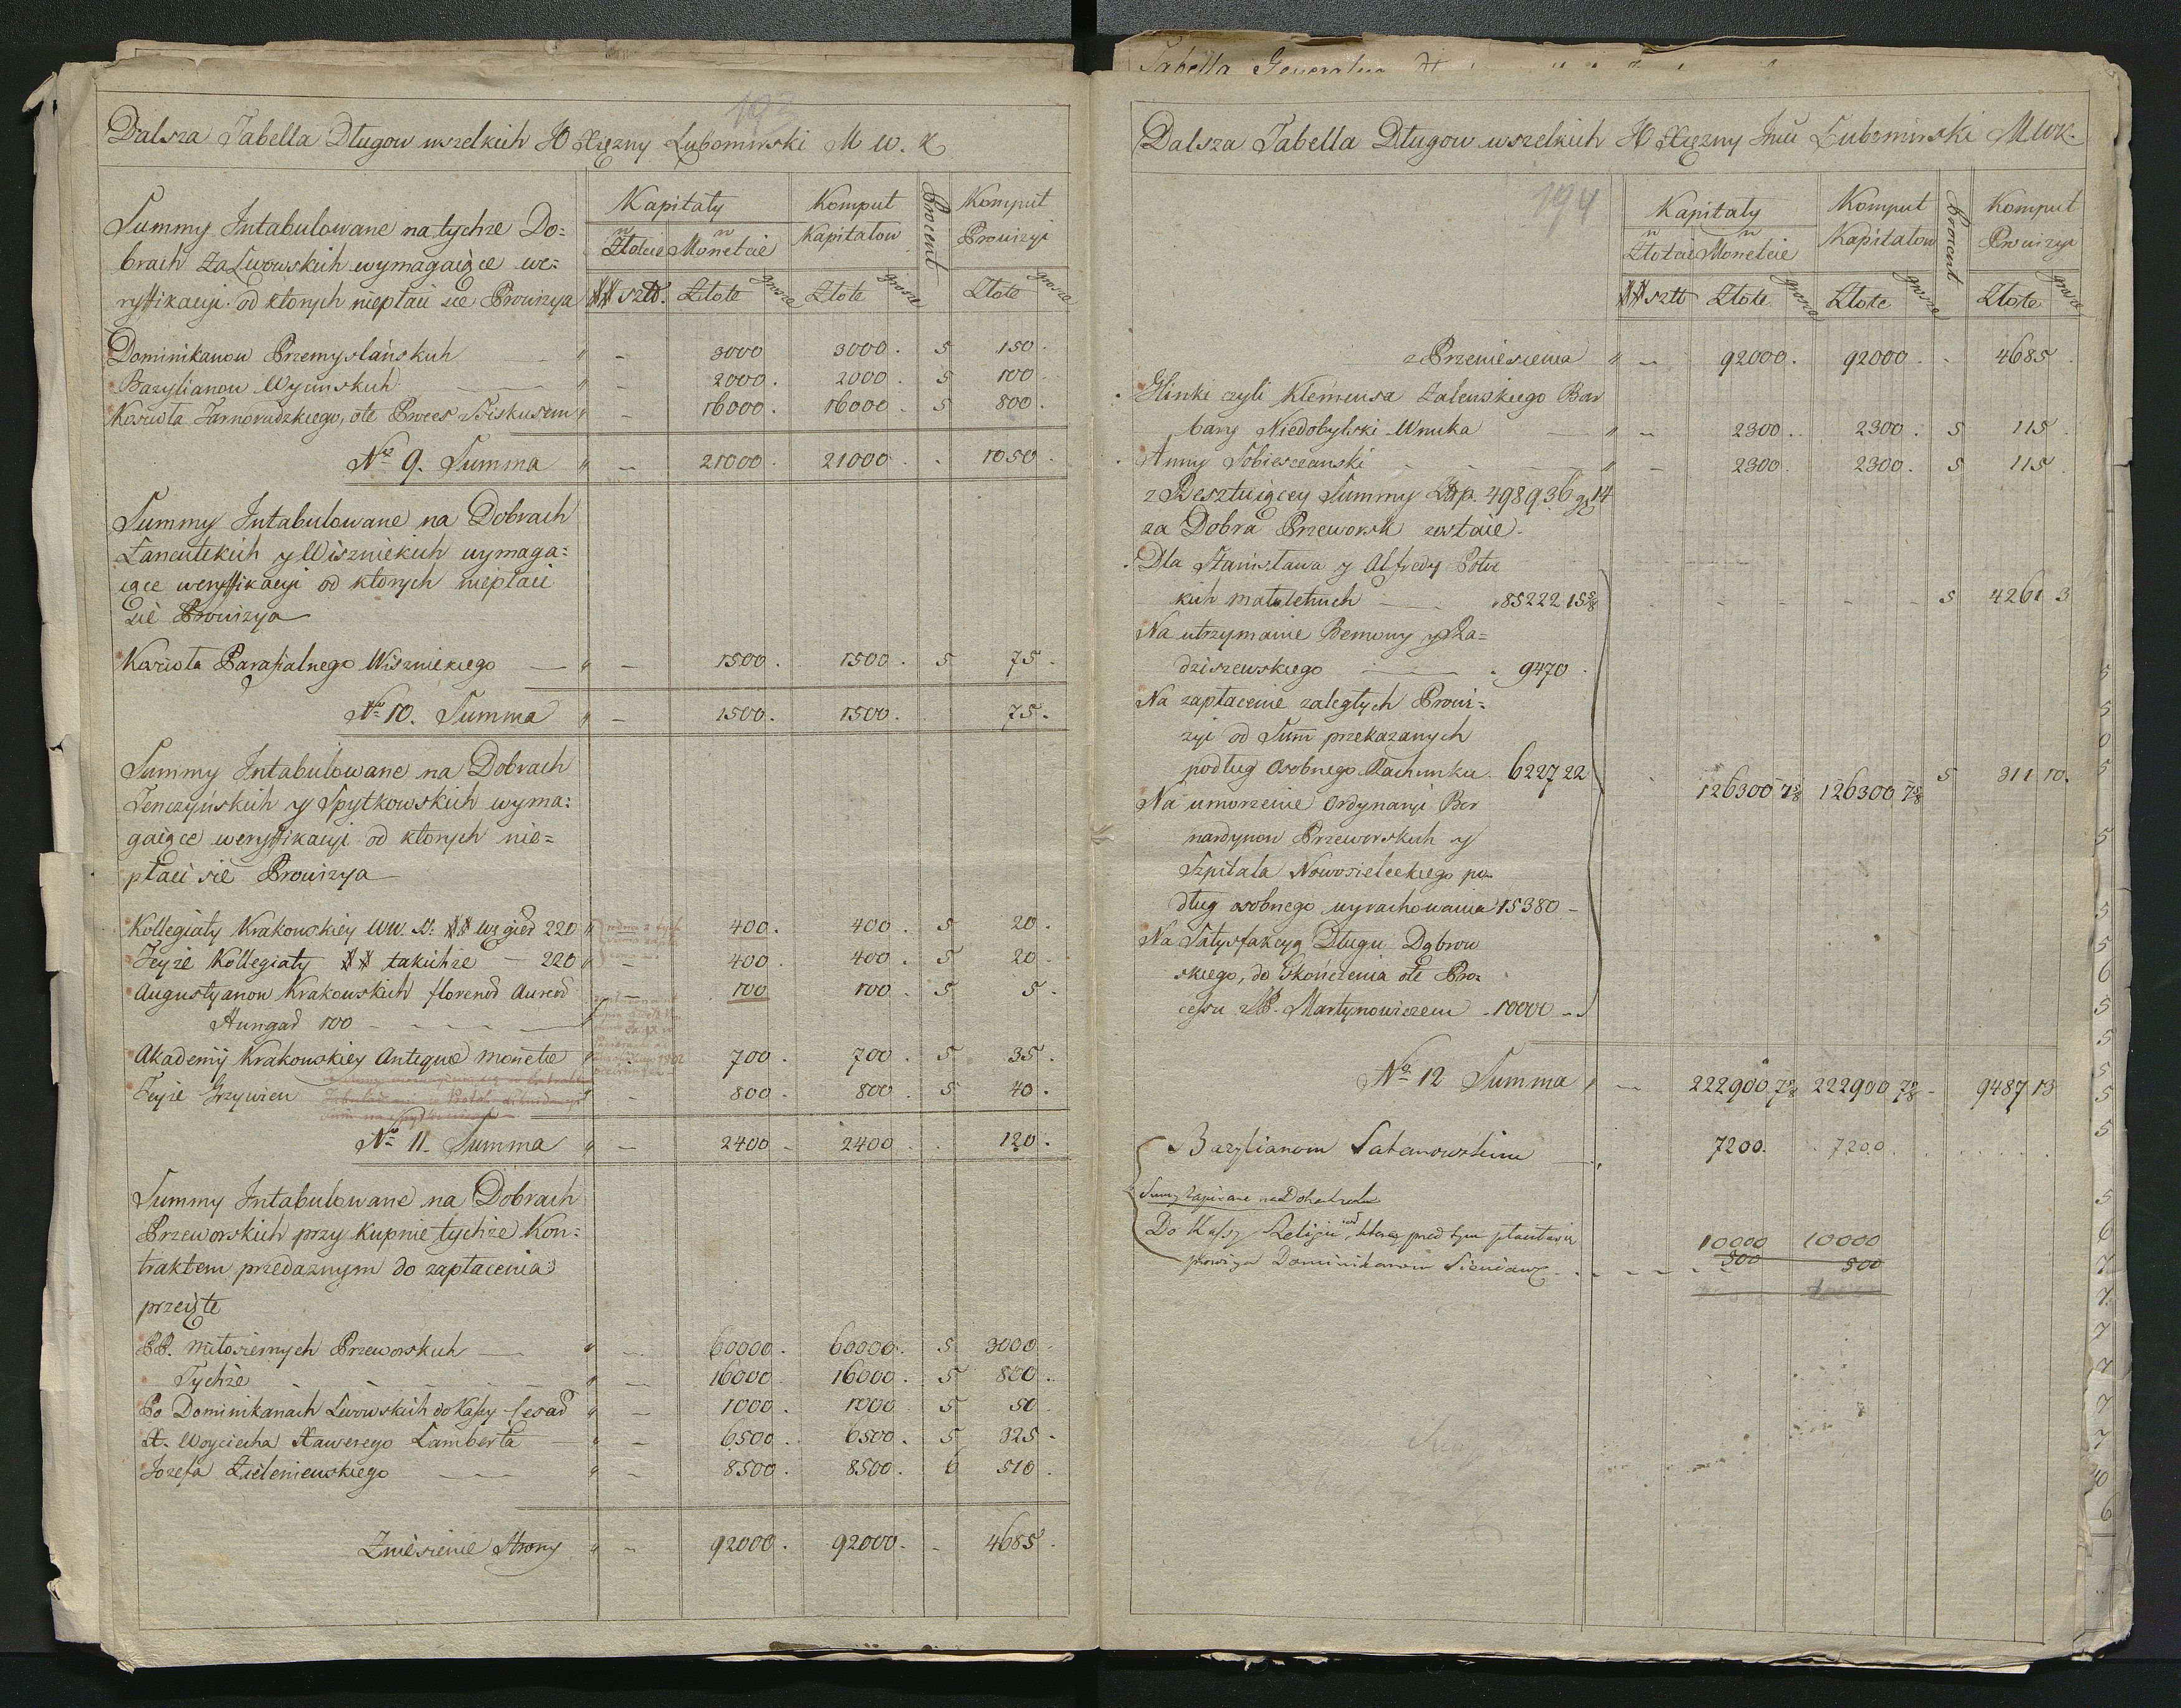 192
Dalsza Tabella Długow wszelkich JO Xiężny Lubomirski M W. K
Summy Intabulowane na tychże Do=
brach Zalwowskich wymagaiące we=
ryffikacyi od ktorych niepłaci sie Prowizya
Kapitały
Komput
Procent
Komput
w Złocie
w Monetcie
Kapitałow
Prowizyi
## sztt. Złote grosze Złote grosze Złote grosze
Dominikanow Przemyslańskich " - 3000 3000. 5 150.
Bazylianow Wycinskich " - 2000. 2000. 5 100.
Koscioła Tarnorudzkiego, ote Proces z Fiskusem " - 16000. 16000. 5 800.
No 9. Summa " - 21000. 21000. . 1050.
Summy Intabulowane na Dobrach
Łancutckich y Wisznickich wymaga=
iące weryffikacyi od ktorych niepłaci
sie Prowizya
Koscioła Parafialnego Wisznickiego " - 1500. 1500. 5 75.
No 10. Summa " - 1500. 1500. 75.
Summy Intabulowane na Dobrach
Tenczyńskich y Spytkowskich wyma=
gaiące weryffikacyi od ktorych nie=
płaci sie Prowizya
Kollegiaty Krakowskiey WW. SS: ## węgierd 220 " 400. 400. 5 20.
Teyże Kollegiaty ## takichże - 220 " - 400. 400. 5 20.
Augustyanow Krakowskich florenod Aureod - 100 100. 5 5.
Hungad 100
Akademij Krakowskiey Antiquæ monetæ " 700. 700. 5 35.
Teyże Grzywien " - 800. 800. 5 40.
No 11. Summa " - 2400 - 2400 . 120.
Summy Intabulowane na Dobrach
Przeworskich przy kupnie tychże Kon=
traktem przedaznym do zapłacenia
przeięte
PP. Miłosiernych Przeworskich " - 60000. 60000. 5 3000.
Tychże " - 16000. 16000. 5 800.
Po Dominikanach Lwowskich do Kassy Cesad " - 1000. 1000. 5 50
X. Woyciecha Xawerego Lamberta " - 6500. 6500. 5 325.
Jozefa Zieleniewskiego " - 8500. 8500. 6 510.
Zniesienie Strony " - 92000. 92000. - 4685.
Tabella Generalna
Dalsza Tabella Długow wszelkich JO Xiężny Jmci Lubomirski MWK.
194
Kapitały
Komput
Procent
Komput
w Złotcie
w Monetcie
Kapitałow
Prowizyi
## sztt Złote grosze Złote grosze Złote grosze
z Przeniesienia " - 92000. 92000. - 4685.
Glinki czyli Klemensa Zalenskiego Bar
bary Niedobylski Wnuka " - 2300. 2300. 5 115.
Anny Sobieszczanski " - 2300. 2300. 5 115.
z Resztuiącey Summy Złp. 498936 gr 14
za Dobra Przeworsk zostaie.
Dla Stanisława y Alfredy Potoc
kich małoletnich 85222 15 5/8 5 4261 3
Na utrzymanie Bemowy y Ra=
dziszewskiego 9470
Na zapłacenie zaległych Prowi=
zyi od Summ przekazanych
podług Osobnego Rachunku 6227 22 126300 7 5/8 126300 7 5/8 5 311 10.
Na umorzenie Ordynaryi Ber
nardynow Przeworskich y
Szpitala Nowosieleckiego po=
dług osobnego wyrachowania 15380 -
Na Satysfakcyą Długu Dąbrow
skiego, do Skończenia ote Pro=
cessu z JP. Martynowiczem - 10000 -
No 12 Summa " - 222900 7 5/8 222900 7 5/8 - 9487 13
Bazylianom Satanowskim 7200. 7200
Summy zapisane na Dobrach
Do Kassy Religii, od ktorey przed tym płaciła się 10000 10000
prowizya Dominikanom Sieniaw. 500 500